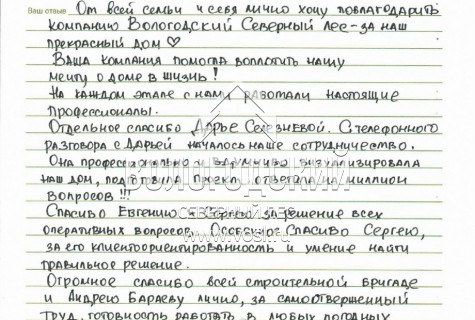 Ваш отзыв От всей семьи и себя лично хочу поблагодарить
компанию Вологодский Северный лес - за наш
прекрасный дом ♡
Ваша компания помогла воплотить нашу
мечту о доме в жизнь!
На каждом этапе с нами работали настоящие
профессионалы.
Отдельное спасибо Дарье Селезневой. С телефонного
разговора с Дарьей началось наше сотрудничество.
Она профессионально и вдумчиво визуализировала
наш дом, подготовила проект, ответила на миллион
вопросов!!!
ВОЛОГОДСКИЙ
СЕВЕРНЫЙ ЛЕС
Спасибо Евгению и Сергею за решение всех
www.vosl.ru
оперативных вопросов. Особенное спасибо Сергею,
за его клиентоориентированность и умение найти
правильное решение.
Огромное спасибо всей строительной бригаде
и Андрею Бараеву лично, за самоотверженный
труд, готовность работать в любых погодных